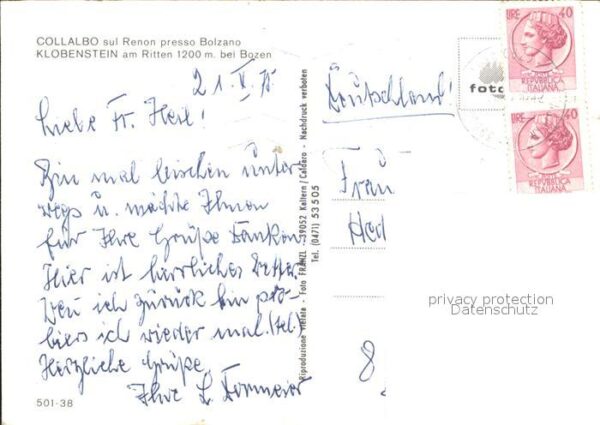 COLLALBO sul Renon presso Bolzano
KLOBENSTEIN am Ritten 1200 m. bei Bozen
21. V. 75
Liebe Fr. Heil!
Bin mal bischen unter
wegs u. möchte Ihnen
für Ihre Grüße danken.
Hier ist herrliches Wetter.
Wen ich zurück bin pro-
biers ich wieder mal. (tel.)
Herzliche Grüße
Ihre L.
501-38
Riproduzione vietata - Foto FRANZL - 39052 Kaltern/Caldaro - Nachdruck verboten
Tel. (0471) 53505
foto
Deutschland!
Frau
Hed
8
LIRE 40
REPVBBLICA
ITALIANA
LIRE 40
REPVBBLICA
ITALIANA
privacy protection
Datenschutz